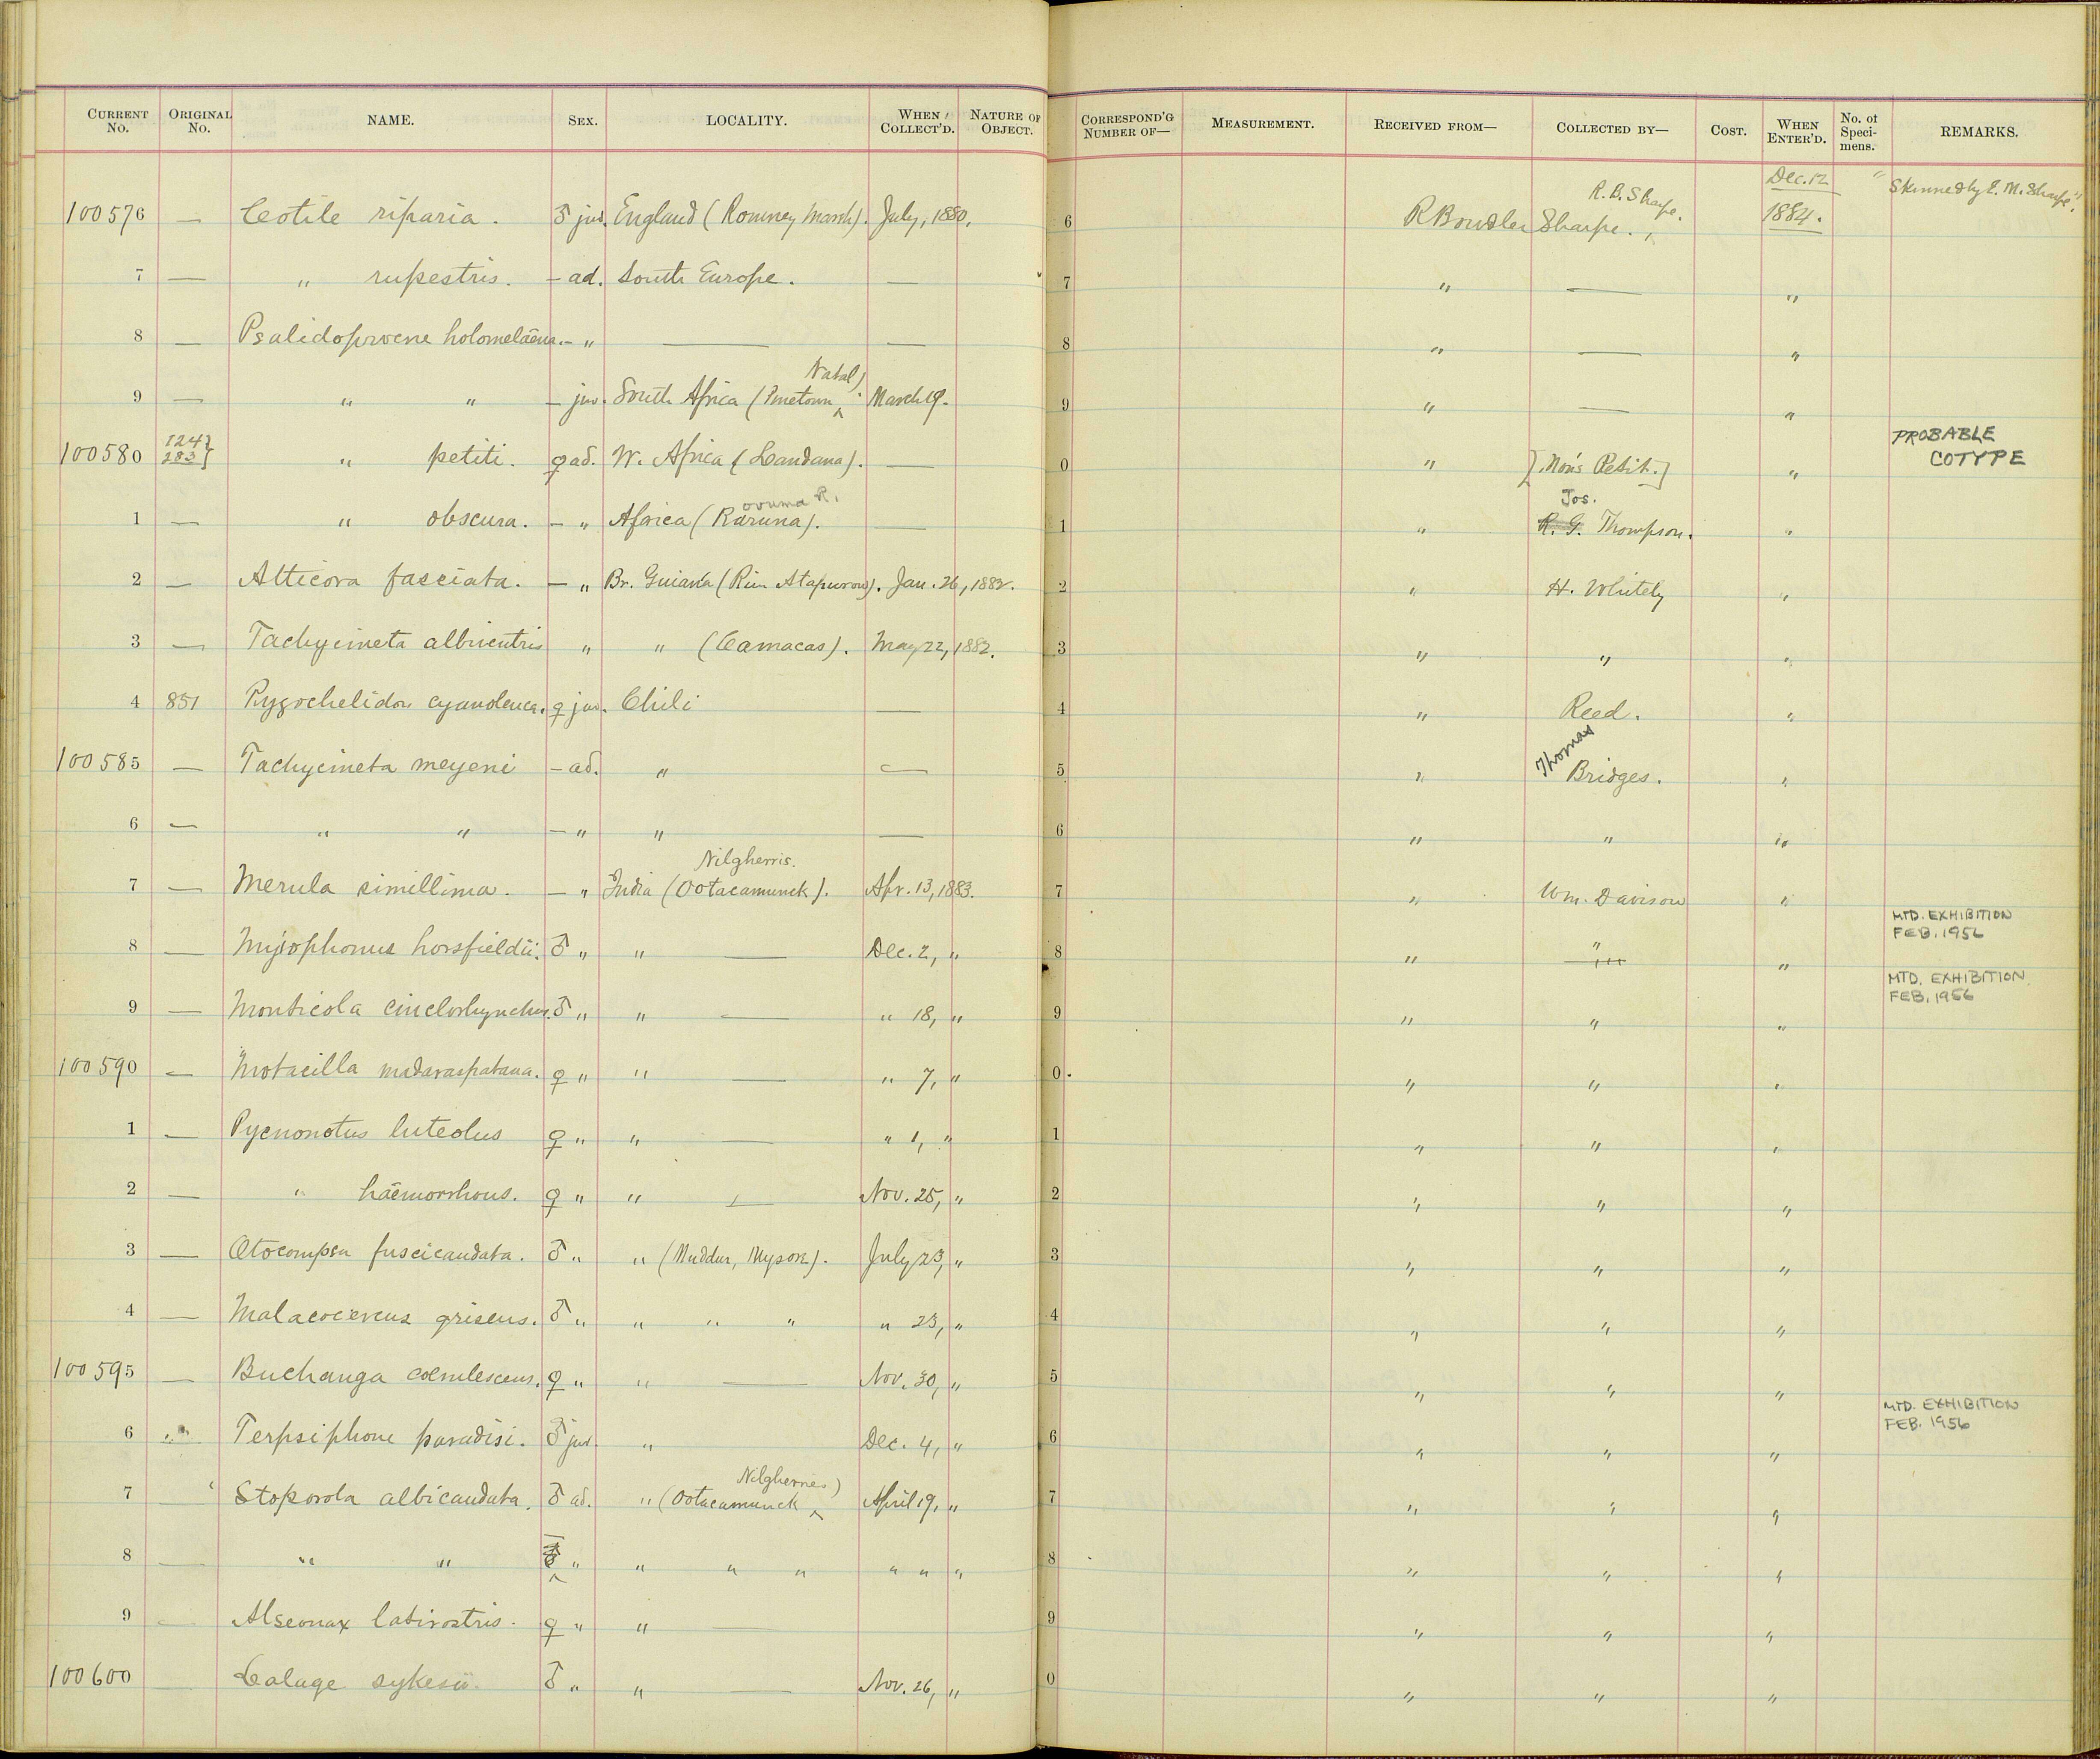 CURRENT No. ORIGINAL No. NAME. SEX. LOCALITY. WHEN COLLECT'D. NATURE OF OBJECT. CORRESPOND'G NUMBER OF— MEASUREMENT. RECEIVED FROM— COLLECTED BY— COST. WHEN ENTER'D. No. of Specimens. REMARKS.
R. B. Sharpe. Dec. 12 "Skinned by E. M. Sharpe".
100576 — Cotile riparia. ♂ juv. England (Romney Marsh). July, 1880. 6 R Bowdler Sharpe. 1884.
7 — " rupestris. — ad. South Europe. — 7 " — "
8 — Psalidoprocne holomelæna. — " — — 8 " — "
Natal)
9 — " " — juv. South Africa (Pinetown ^. March 19. 9 " — "
124} PROBABLE
100580 283} " petiti. ♀ ad. W. Africa (Landana). — 0 " [Mons Petit.] " COTYPE
ovuma R. Jos.
1 — " obscura. — " Africa (Raruna). — 1 " R. G. Thompson. "
2 — Atticora fasciata. — " Br. Guiana (River Atapurow). Jan. 26, 1882. 2 " H. Whitely "
3 — Tachycineta albiventris " " (Camacas). May 22, 1882. 3 " " "
4 851 Pygochelidon cyanoleuca. ♀ juv. Chili — 4 " Reed. "
Thomas
100585 — Tachycineta meyeni — ad. " — 5 " Bridges. "
6 — " " — " " — 6 " " "
Nilgherris.
7 — Merula simillima. — " India (Ootacamunck). Apr. 13, 1883. 7 " Wm. Davison "
MTD. EXHIBITION
FEB. 1956
8 — Myiophonus horsfieldii. ♂ " " — Dec. 2, " 8 " " "
MTD. EXHIBITION
FEB. 1956
9 — Monticola cinclorhynchus. ♂ " " — " 18, " 9 " " "
100590 — Motacilla madaraspatana. ♀ " " — " 7, " 0 " " "
1 — Pycnonotus luteolus ♀ " " — " 1, " 1 " " "
2 — " hæmorrhous. ♀ " " — Nov. 25, " 2 " " "
3 — Otocompsa fuscicaudata. ♂ " " (Muddur, Mysore). July 23, " 3 " " "
4 — Malacocercus griseus. ♂ " " " " " 23, " 4 " " "
100595 — Buchanga cœrulescens. ♀ " " — Nov. 30, " 5 " " "
MTD. EXHIBITION
FEB. 1956
6 Terpsiphone paradisi. ♂ juv. " Dec. 4, " 6 " " "
Nilgherries)
7 — Stoporola albicaudata. ♂ ad. " (Ootacamunck ^ April 19, " 7 " " "
8 — " " " " " " " " " 8 " " "
9 — Alseonax latirostris. ♀ " " — 9 " " "
100600 — Lalage sykesii. ♂ " " — Nov. 26, " 0 " " "